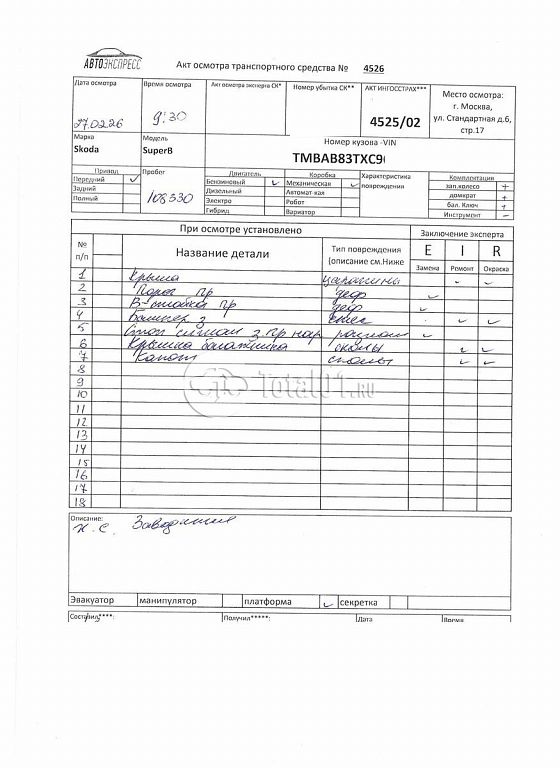 АВТОЭКСПРЕСС
Акт осмотра транспортного средства № 4526
Дата осмотра
Время осмотра
Акт осмотра эксперта СК*
Номер убытка СК**
АКТ ИНГОССТРАХ***
Место осмотра:
г. Москва,
ул. Стандартная д.6,
стр.17
27.02.26
9:30
4525/02
Марка
Модель
Номер кузова -VIN
Skoda
SuperB
TMBAB83TXC9
Привод
Пробег
Двигатель
Коробка
Характеристика
повреждения
Комплектация
Передний ✓
Бензиновый ✓
Механическая ✓
зап.колесо +
Задний
108330
Дизельный
Автомат-кая
домкрат +
Полный
Электро
Робот
бал. Ключ +
Гибрид
Вариатор
Инструмент -
При осмотре установлено
Заключение эксперта
№
п/п
Название детали
Тип повреждения
(описание см.Ниже
E I R
Замена Ремонт Окраска
1 Крыша царапины ✓ ✓
2 Порог пр деф ✓
3 В-стойка пр деф ✓
4 Бампер з ✓ ✓
5 Стоп сигнал з.пр нар ✓
6 Крышка багажника сколы ✓ ✓
7 Капот сколы ✓ ✓
8
9
10
Total01.RU
11
12
13
14
15
16
17
18
Описание:
Н.С.
Эвакуатор манипулятор платформа ✓ секретка
Составил****: Получил*****: Дата Время